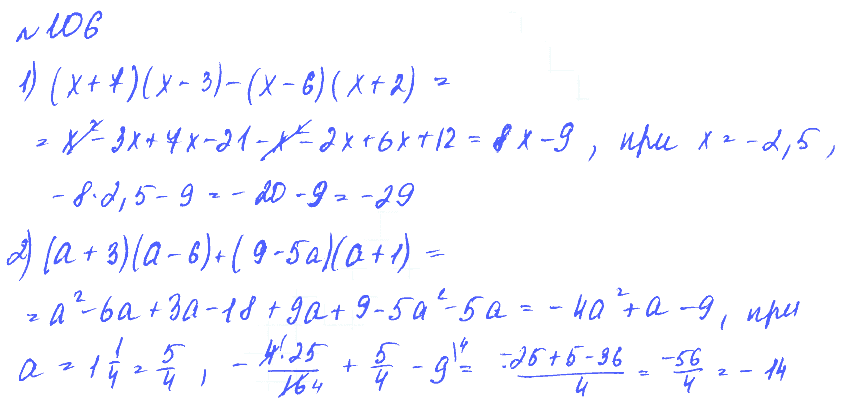 №106
1) (x+7)(x-3)-(x-6)(x+2) =
= x²-3x+7x-21-x²-2x+6x+12 = 8x-9, при x = -2,5,
-8·2,5-9 = -20-9 = -29
2) (a+3)(a-6)+(9-5a)(a+1) =
= a²-6a+3a-18+9a+9-5a²-5a = -4a²+a-9, при
a = 1 1/4 = 5/4, - 4·25/16 4 + 5/4 - 9\4 = -25+5-36/4 = -56/4 = -14